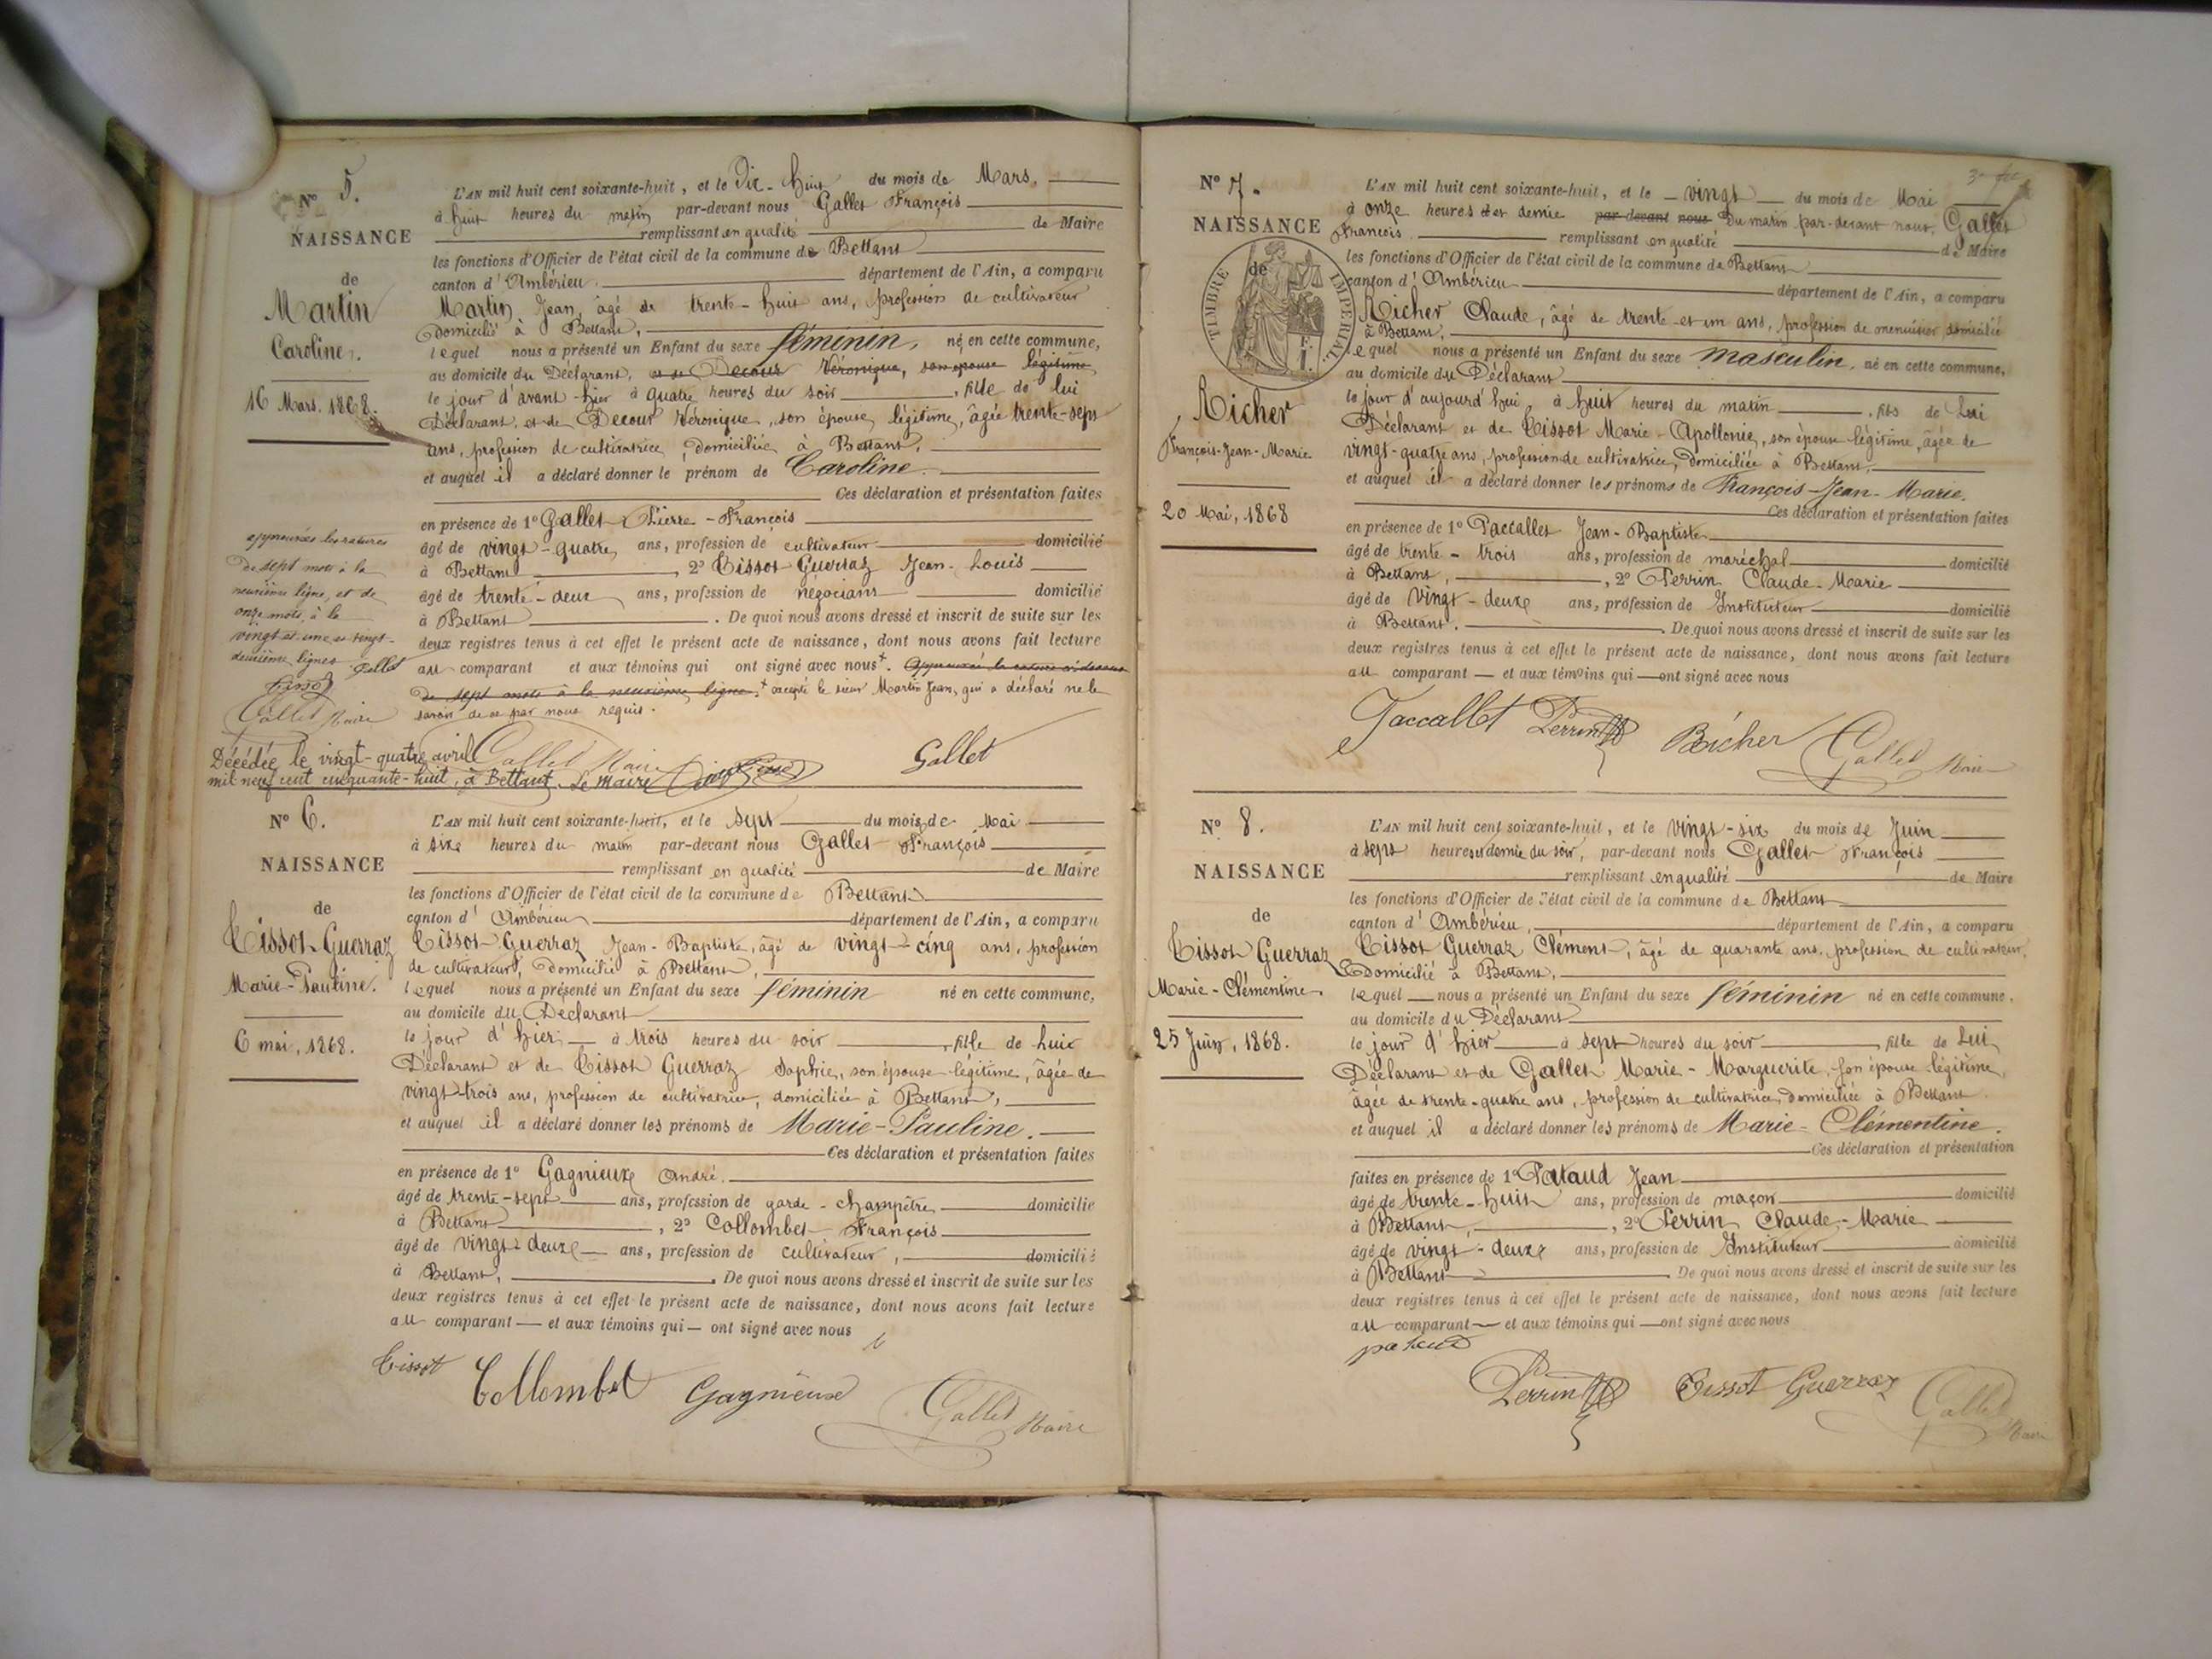 N° 5.
NAISSANCE
de
Martin
Caroline.
16 Mars. 1868.
L'AN mil huit cent soixante-huit, et le Dix-huit du mois de Mars,
à huit heures du matin par-devant nous Gallet François
remplissant en qualité de Maire
les fonctions d'Officier de l'état civil de la commune de Bettant
canton d'Ambérieu département de l'Ain, a comparu
Martin Jean, âgé de trente-huit ans, profession de cultivateur
Domicilié à Bettant,
lequel nous a présenté un Enfant du sexe féminin, né en cette commune,
au domicile du Déclarant, et de Decour Véronique, son épouse légitime
le jour d'avant-hier à quatre heures du soir, fille de lui
Déclarant et de Decour Véronique, son épouse légitime, âgée trente-sept
ans, profession de cultivatrice, domiciliée à Bettant,
et auquel il a déclaré donner le prénom de Caroline.
Ces déclaration et présentation faites
en présence de 1° Gallet Pierre-François
âgé de vingt-quatre ans, profession de cultivateur domicilié
à Bettant, 2° Tissot Guerraz Jean-Louis
âgé de trente-deux ans, profession de négociant domicilié
à Bettant. De quoi nous avons dressé et inscrit de suite sur les
deux registres tenus à cet effet le présent acte de naissance, dont nous avons fait lecture
au comparant et aux témoins qui ont signé avec nous+. Approuvée la rature ci-dessus
de sept mots à la neuvième ligne. + excepté le sieur Martin Jean, qui a déclaré ne le
savoir de ce par nous requis.
approuvées les ratures
de sept mots à la
neuvième ligne, et de
onze mots à la
vingt et une et vingt-
deuxième lignes Gallet
Tissot
Gallet Maire
Gallet Maire Gallet
Décédée le vingt-quatre avril
mil neuf cent cinquante-huit, à Bettant. Le Maire
N° 6.
NAISSANCE
de
Tissot-Guerraz
Marie-Pauline.
6 mai, 1868.
L'AN mil huit cent soixante-huit, et le sept du mois de Mai
à six heures du matin par-devant nous Gallet François
remplissant en qualité de Maire
les fonctions d'Officier de l'état civil de la commune de Bettant
canton d'Ambérieu département de l'Ain, a comparu
Tissot-Guerraz Jean-Baptiste, âgé de vingt-cinq ans, profession
de cultivateur, domicilié à Bettant,
lequel nous a présenté un Enfant du sexe féminin né en cette commune,
au domicile du Déclarant
le jour d'hier à trois heures du soir, fille de lui
Déclarant et de Tissot Guerraz Sophie, son épouse légitime, âgée de
vingt-trois ans, profession de cultivatrice, domiciliée à Bettant,
et auquel il a déclaré donner les prénoms de Marie-Pauline.
Ces déclaration et présentation faites
en présence de 1° Gagnieux André.
âgé de trente-sept ans, profession de garde-champêtre domicilié
à Bettant, 2° Collombet François
âgé de vingt-deux ans, profession de cultivateur, domicilié
à Bettant, De quoi nous avons dressé et inscrit de suite sur les
deux registres tenus à cet effet le présent acte de naissance, dont nous avons fait lecture
au comparant et aux témoins qui ont signé avec nous
Tissot Collombet Gagnieux Gallet Maire
N° 7.
NAISSANCE
de
TIMBRE IMPÉRIAL
Richer
François-Jean-Marie
20 Mai, 1868
L'AN mil huit cent soixante-huit, et le vingt du mois de Mai
à onze heures et demie par-devant nous du matin par-devant nous, Gallet
François remplissant en qualité de Maire
les fonctions d'Officier de l'état civil de la commune de Bettant
canton d'Ambérieu département de l'Ain, a comparu
Richer Claude, âgé de trente-et-un ans, profession de menuisier domicilié
à Bettant,
lequel nous a présenté un Enfant du sexe masculin, né en cette commune,
au domicile du Déclarant
le jour d'aujourd'hui, à huit heures du matin, fils de Lui
Déclarant et de Tissot Marie-Apollonie, son épouse légitime, âgée de
vingt-quatre ans, profession de cultivatrice, domiciliée à Bettant,
et auquel il a déclaré donner les prénoms de François-Jean-Marie.
Ces déclaration et présentation faites
en présence de 1° Paccallet Jean-Baptiste
âgé de trente-trois ans, profession de maréchal domicilié
à Bettant, 2° Perrin Claude-Marie
âgé de vingt-deux ans, profession de Instituteur domicilié
à Bettant. De quoi nous avons dressé et inscrit de suite sur les
deux registres tenus à cet effet le présent acte de naissance, dont nous avons fait lecture
au comparant et aux témoins qui ont signé avec nous
Paccallet Perrin Richer Gallet Maire
N° 8.
NAISSANCE
de
Tissot Guerraz
Marie-Clémentine.
25 Juin, 1868.
L'AN mil huit cent soixante-huit, et le vingt-six du mois de Juin
à sept heures et demie du soir, par-devant nous Gallet François
remplissant en qualité de Maire
les fonctions d'Officier de l'état civil de la commune de Bettant
canton d'Ambérieu, département de l'Ain, a comparu
Tissot Guerraz Clément, âgé de quarante ans, profession de cultivateur,
Domicilié à Bettant,
lequel nous a présenté un Enfant du sexe féminin né en cette commune,
au domicile du Déclarant
le jour d'hier à sept heures du soir, fille de Lui
Déclarant et de Gallet Marie-Marguerite, son épouse légitime,
âgée de trente-quatre ans, profession de cultivatrice, domiciliée à Bettant.
et auquel il a déclaré donner les prénoms de Marie-Clémentine.
Ces déclaration et présentation
faites en présence de 1° Pataud Jean
âgé de trente-huit ans, profession de maçon domicilié
à Bettant, 2° Perrin Claude-Marie
âgé de vingt-deux ans, profession de Instituteur domicilié
à Bettant De quoi nous avons dressé et inscrit de suite sur les
deux registres tenus à cet effet le présent acte de naissance, dont nous avons fait lecture
au comparant et aux témoins qui ont signé avec nous
pataud
Perrin Tissot Guerraz Gallet
Maire